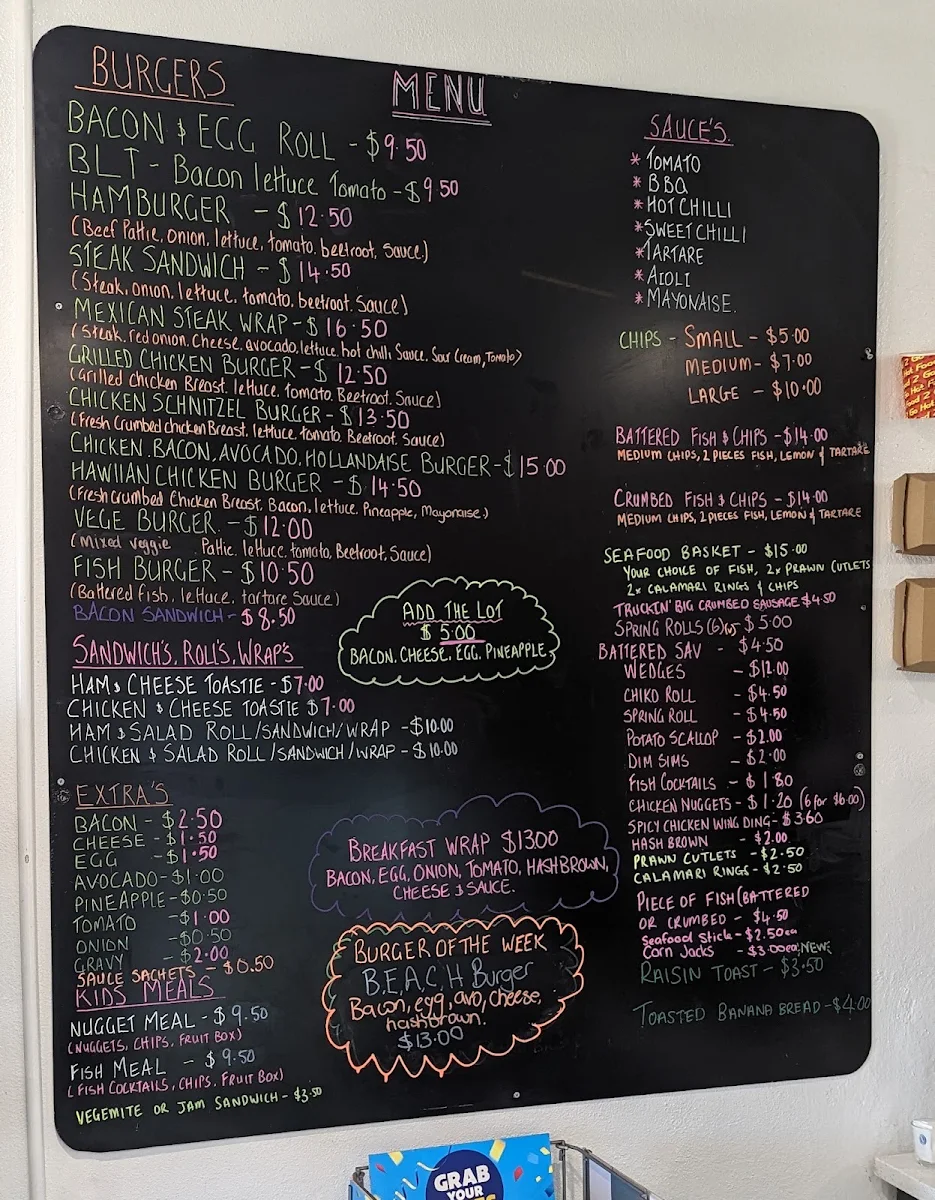 MENU
BURGERS
BACON & EGG ROLL - $9.50
BLT - Bacon lettuce Tomato - $9.50
HAMBURGER - $12.50
(Beef Pattie, onion, lettuce, tomato, beetroot, Sauce)
STEAK SANDWICH - $14.50
(Steak, onion, lettuce, tomato, beetroot, Sauce)
MEXICAN STEAK WRAP - $16.50
(Steak, red onion, Cheese, avocado, lettuce, hot chilli Sauce, Sour Cream, Tomato)
GRILLED CHICKEN BURGER - $12.50
(Grilled chicken Breast, lettuce, Tomato, Beetroot, Sauce)
CHICKEN SCHNITZEL BURGER - $13.50
(Fresh Crumbed chicken Breast, lettuce, tomato, Beetroot, Sauce)
CHICKEN, BACON, AVOCADO, HOLLANDAISE BURGER - $15.00
HAWIIAN CHICKEN BURGER - $14.50
(Fresh Crumbed Chicken Breast, Bacon, lettuce, Pineapple, Mayonaise)
VEGE BURGER - $12.00
(Mixed veggie Pattie, lettuce, tomato, Beetroot, Sauce)
FISH BURGER - $10.50
(Battered Fish, lettuce, tartare Sauce)
BACON SANDWICH - $8.50
ADD THE LOT
$5.00
BACON, CHEESE, EGG, PINEAPPLE
SANDWICH'S, ROLL'S, WRAP'S
HAM & CHEESE TOASTIE - $7.00
CHICKEN & CHEESE TOASTIE $7.00
HAM & SALAD ROLL/SANDWICH/WRAP - $10.00
CHICKEN & SALAD ROLL/SANDWICH/WRAP - $10.00
EXTRA'S
BACON - $2.50
CHEESE - $1.50
EGG - $1.50
AVOCADO - $1.00
PINEAPPLE - $0.50
TOMATO - $1.00
ONION - $0.50
GRAVY - $2.00
SAUCE SACHETS - $0.50
KIDS MEALS
NUGGET MEAL - $9.50
(NUGGETS, CHIPS, FRUIT BOX)
FISH MEAL - $9.50
(FISH COCKTAILS, CHIPS, FRUIT BOX)
VEGEMITE OR JAM SANDWICH - $3.50
BREAKFAST WRAP $1300
BACON, EGG, ONION, TOMATO, HASHBROWN,
CHEESE & SAUCE.
BURGER OF THE WEEK
B.E.A.C.H Burger
Bacon, egg, avo, cheese,
hashbrown.
$13.00
SAUCE'S.
* TOMATO
* BBQ
* HOT CHILLI
* SWEET CHILLI
* TARTARE
* AIOLI
* MAYONAISE.
CHIPS - SMALL - $5.00
MEDIUM - $7.00
LARGE - $10.00
BATTERED FISH & CHIPS - $14.00
MEDIUM CHIPS, 2 PIECES FISH, LEMON & TARTARE
CRUMBED FISH & CHIPS - $14.00
MEDIUM CHIPS, 2 PIECES FISH, LEMON & TARTARE
SEAFOOD BASKET - $15.00
YOUR CHOICE OF FISH, 2x PRAWN CUTLETS
2x CALAMARI RINGS & CHIPS
TRUCKIN' BIG CRUMBED SAUSAGE $4.50
SPRING ROLLS (6) $5.00
BATTERED SAV - $4.50
WEDGES - $12.00
CHIKO ROLL - $4.50
SPRING ROLL - $4.50
POTATO SCALLOP - $2.00
DIM SIMS - $2.00
FISH COCKTAILS - $1.80
CHICKEN NUGGETS - $1.20 (6 for $6.00)
SPICY CHICKEN WING DING - $3.60
HASH BROWN - $2.00
PRAWN CUTLETS - $2.50
CALAMARI RINGS - $2.50
PIECE OF FISH (BATTERED
OR CRUMBED - $4.50
Seafood Stick - $2.50ea
Corn Jacks - $3.00ea NEW
RAISIN TOAST - $3.50
TOASTED BANANA BREAD - $4.00
GRAB
YOUR